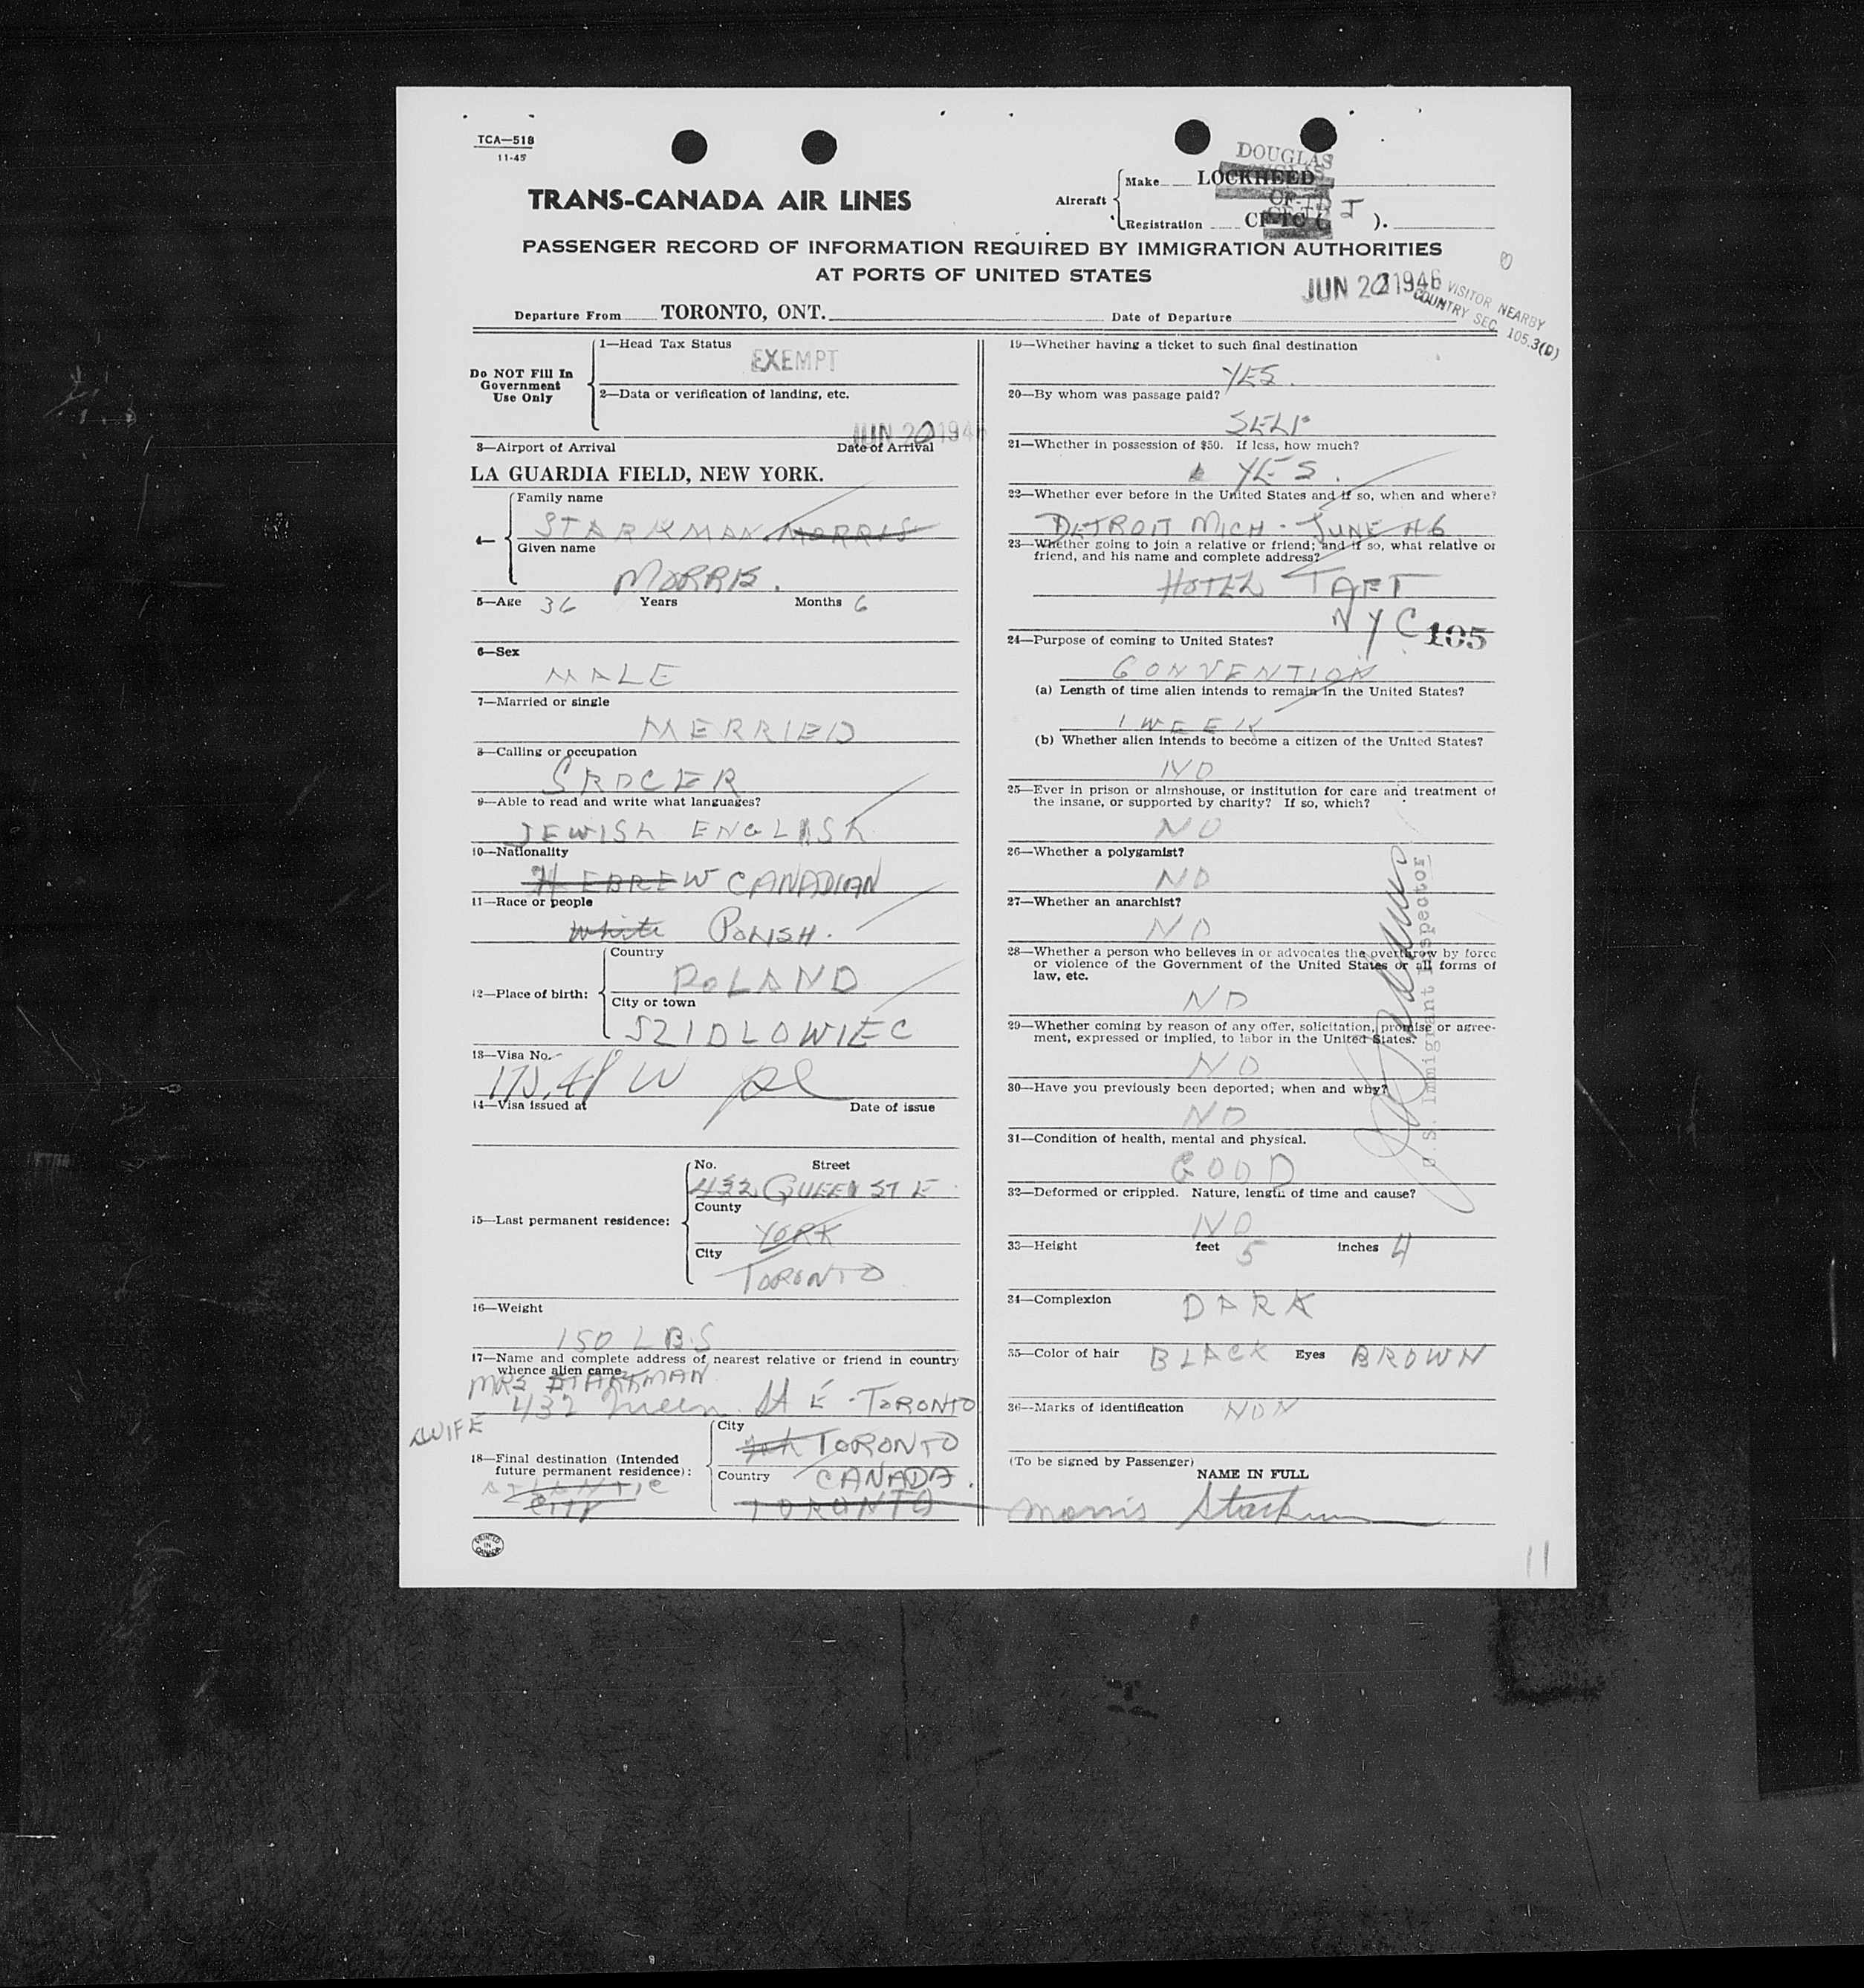 TCA—518
11-45
TRANS-CANADA AIR LINES
DOUGLAS
Aircraft
Make LOCKHEED
CF-TD I
Registration CF-TC ( ).
PASSENGER RECORD OF INFORMATION REQUIRED BY IMMIGRATION AUTHORITIES
AT PORTS OF UNITED STATES
JUN 20 1946
VISITOR NEARBY
COUNTRY SEC. 105.3(D)
Departure From TORONTO, ONT. Date of Departure
Do NOT Fill In
Government
Use Only
1—Head Tax Status
EXEMPT
2—Data or verification of landing, etc.
JUN 20 1946
3—Airport of Arrival Date of Arrival
LA GUARDIA FIELD, NEW YORK.
4—
Family name
STARKMAN MORRIS
Given name
MORRIS.
5—Age 36 Years Months 6
6—Sex
MALE
7—Married or single
MERRIED
8—Calling or occupation
GROCER
9—Able to read and write what languages?
JEWISH ENGLISH
10—Nationality
HEBREW CANADIAN
11—Race or people
White POLISH.
12—Place of birth:
Country
POLAND
City or town
SZIDLOWIEC
13—Visa No.
14—Visa issued at Date of issue
15—Last permanent residence:
No. Street
432 QUEEN ST E
County
YORK
City
TORONTO
16—Weight
150 LBS
17—Name and complete address of nearest relative or friend in country
whence alien came
MRS STARKMAN
432 Queen St E - TORONTO
WIFE
18—Final destination (Intended
future permanent residence):
ATLANTIC
CITY
City
TORONTO
Country CANADA.
TORONTO
PRINTED
IN
CANADA
19—Whether having a ticket to such final destination
YES.
20—By whom was passage paid?
SELF
21—Whether in possession of $50. If less, how much?
YES.
22—Whether ever before in the United States and if so, when and where?
DETROIT MICH - JUNE 46
23—Whether going to join a relative or friend; and if so, what relative or
friend, and his name and complete address?
HOTEL TAFT
NYC 105
24—Purpose of coming to United States?
CONVENTION
(a) Length of time alien intends to remain in the United States?
1 WEEK
(b) Whether alien intends to become a citizen of the United States?
NO
25—Ever in prison or almshouse, or institution for care and treatment of
the insane, or supported by charity? If so, which?
NO
26—Whether a polygamist?
NO
27—Whether an anarchist?
NO
28—Whether a person who believes in or advocates the overthrow by force
or violence of the Government of the United States or all forms of
law, etc.
NO
29—Whether coming by reason of any offer, solicitation, promise or agree-
ment, expressed or implied, to labor in the United States?
NO
30—Have you previously been deported; when and why?
NO
31—Condition of health, mental and physical.
GOOD
32—Deformed or crippled. Nature, length of time and cause?
NO
33—Height feet 5 inches 4
34—Complexion DARK
35—Color of hair BLACK Eyes BROWN
36—Marks of identification NON
U.S. Immigrant Inspector
(To be signed by Passenger)
NAME IN FULL
Morris Starkman
11